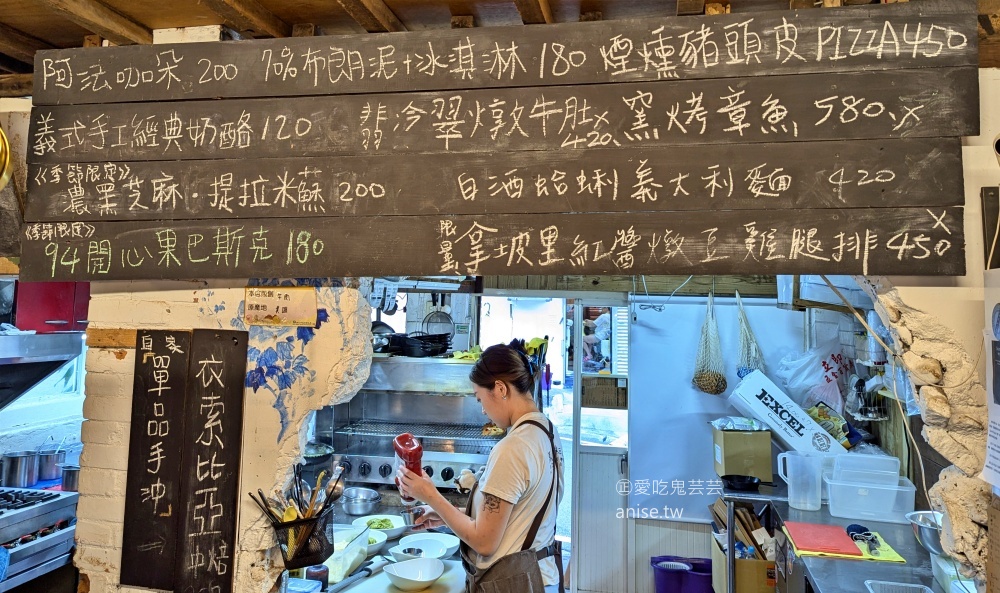 阿法咖朵 200 78%布朗泥+冰淇淋 180 煙燻豬頭皮PIZZA450
義式手工經典奶酪 120 翡冷翠燉牛肚 420 x 窯烤章魚 580 x
《季節限定》
濃黑芝麻·提拉米蘇 200 白酒蛤蜊義大利麵 420
《季節限定》
94開心果巴斯克 180 限量 拿坡里紅醬燉豆雞腿排 450 x
自家
單品手沖
→
衣索比亞
中焙
EXCEL
@愛吃鬼芸芸
anise.tw